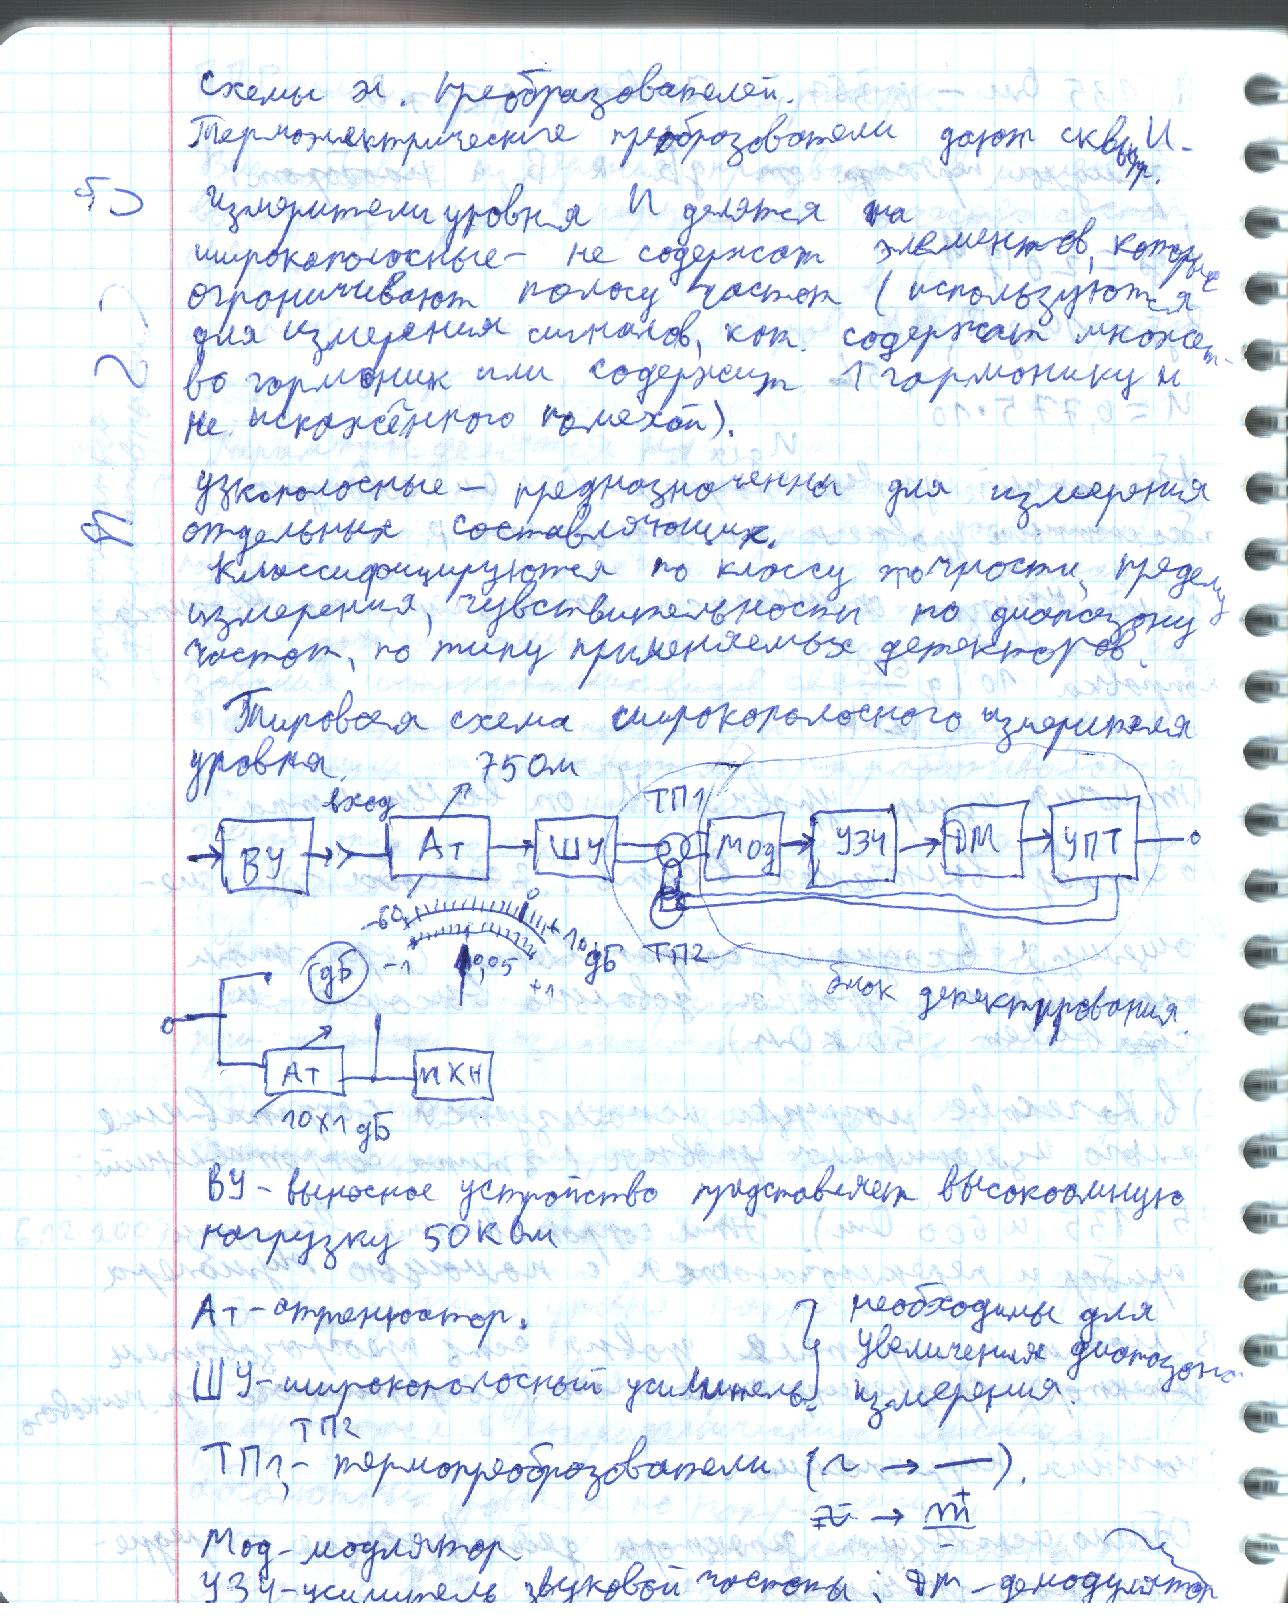 Схемы эл. преобразователей.
Термоэлектрические преобразователи дают ск U.
Измерители уровня U делятся на
широкополосные - не содержат элементов, которые
ограничивают полосу частот (используются
для измерения сигналов, кот. содержат множест-
во гармоник или содержит 1 гармонику и
не искажённого помехой).
узкополосные - предназначенны для измерения
отдельных составляющих.
Классифицируются по классу точности, пределу
измерения, чувствительности по диапазону
частот, по типу применяемых детекторов.
Типовая схема широкополосного измерителя
уровня.
75 Ом
вход
ТП1
ВУ
Ат
ШУ
Мод
УЗЧ
ДМ
УПТ
ТП2
-60
0
+10
дБ
-1
0,05
+1
дБ
блок детектирования.
Ат
МХН
10х1 дБ
ВУ - выносное устройство представляет высокоомную
нагрузку 50 кОм
Ат - аттенюатор.
ШУ - широкополосный усилитель.
} необходимы для
увеличения диапазона
измерения.
ТП1, ТП2 - термопреобразователи (~ → —).
Мод - модулятор
УЗЧ - усилитель звуковой частоты; ДМ - демодулятор